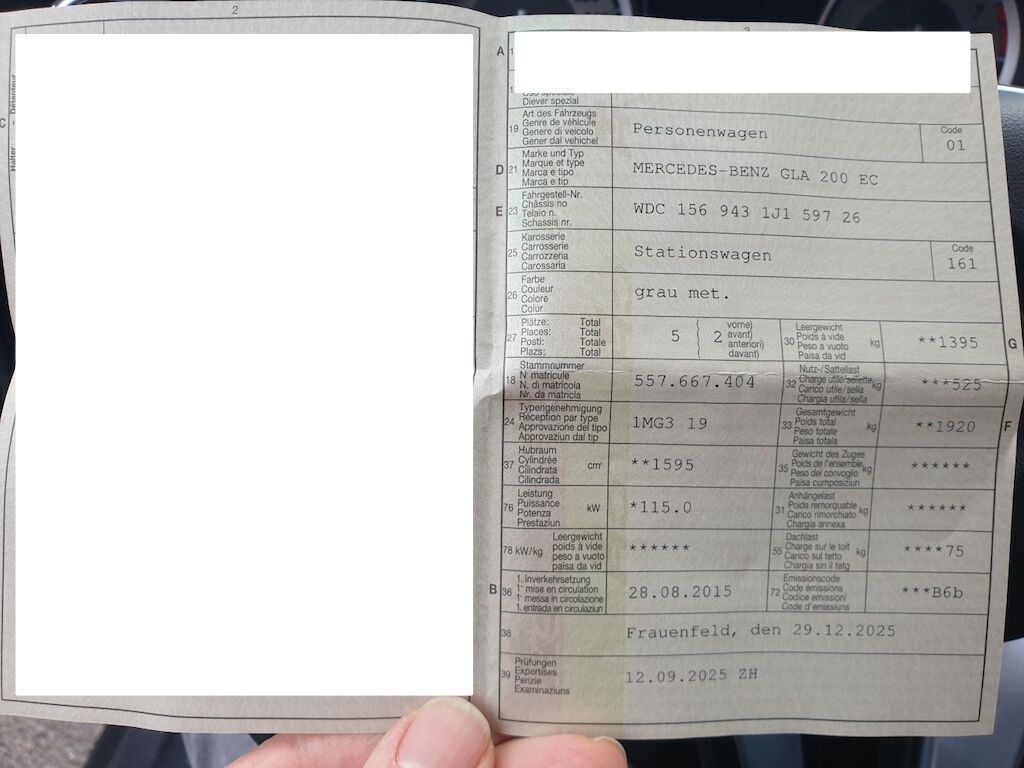 2
3
A
C
Halter - Détenteur
Diever spezial
19 Art des Fahrzeugs
Genre de véhicule
Genere di veicolo
Gener dal vehichel
Personenwagen
Code
01
D 21 Marke und Typ
Marque et type
Marca e tipo
Marca e tip
MERCEDES-BENZ GLA 200 EC
E 23 Fahrgestell-Nr.
Châssis no
Telaio n.
Schassis nr.
WDC 156 943 1J1 597 26
25 Karosserie
Carrosserie
Carrozzeria
Carossaria
Stationswagen
Code
161
26 Farbe
Couleur
Colore
Colur
grau met.
27 Plätze: Total
Places: Total
Posti: Totale
Plazs: Total
5 2 vorne)
avant)
anteriori)
davant)
30 Leergewicht
Poids à vide
Peso a vuoto
Paisa da vid
kg
**1395
G
18 Stammnummer
N° matricule
N. di matricola
Nr. da matricla
557.667.404
32 Nutz-/Sattellast
Charge utile/sellette
Carico utile/sella
Chargia utila/sella
kg
***525
24 Typengenehmigung
Réception par type
Approvazione del tipo
Approvaziun dal tip
1MG3 19
33 Gesamtgewicht
Poids total
Peso totale
Paisa totala
kg
**1920
F
37 Hubraum
Cylindrée
Cilindrata
Cilindrada
cm³
**1595
35 Gewicht des Zuges
Poids de l'ensemble
Peso del convoglio
Paisa cumposiziun
kg
******
76 Leistung
Puissance
Potenza
Prestaziun
kW
*115.0
31 Anhängelast
Poids remorquable
Carico rimorchiato
Chargia annexa
kg
******
78 kW/kg Leergewicht
poids à vide
peso a vuoto
paisa da vid
******
55 Dachlast
Charge sur le toit
Carico sul tetto
Chargia sin il tetg
kg
****75
B 36 1. Inverkehrsetzung
1e mise en circulation
1a messa in circolazione
1. entrada en circulaziun
28.08.2015
72 Emissionscode
Code émissions
Codice emissioni
Code d'emissiuns
***B6b
38
Frauenfeld, den 29.12.2025
39 Prüfungen
Expertises
Perizie
Examinaziuns
12.09.2025 ZH